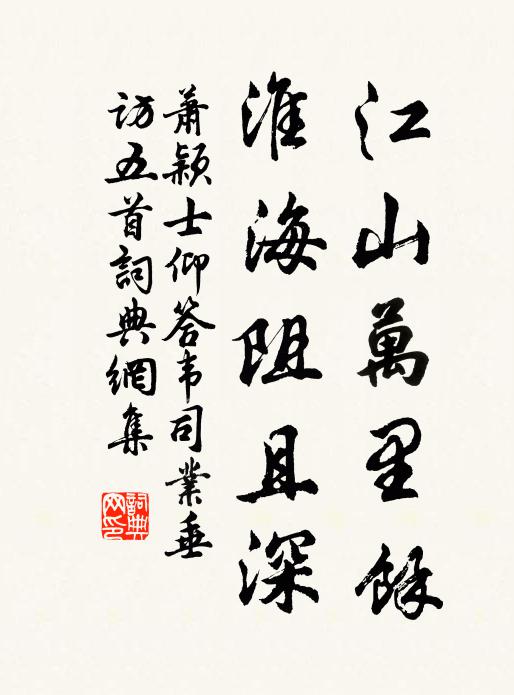 江山萬里餘
淮海阻且深
蕭颖士仰答韦司業垂
訪五首詞典網集
詞典网印